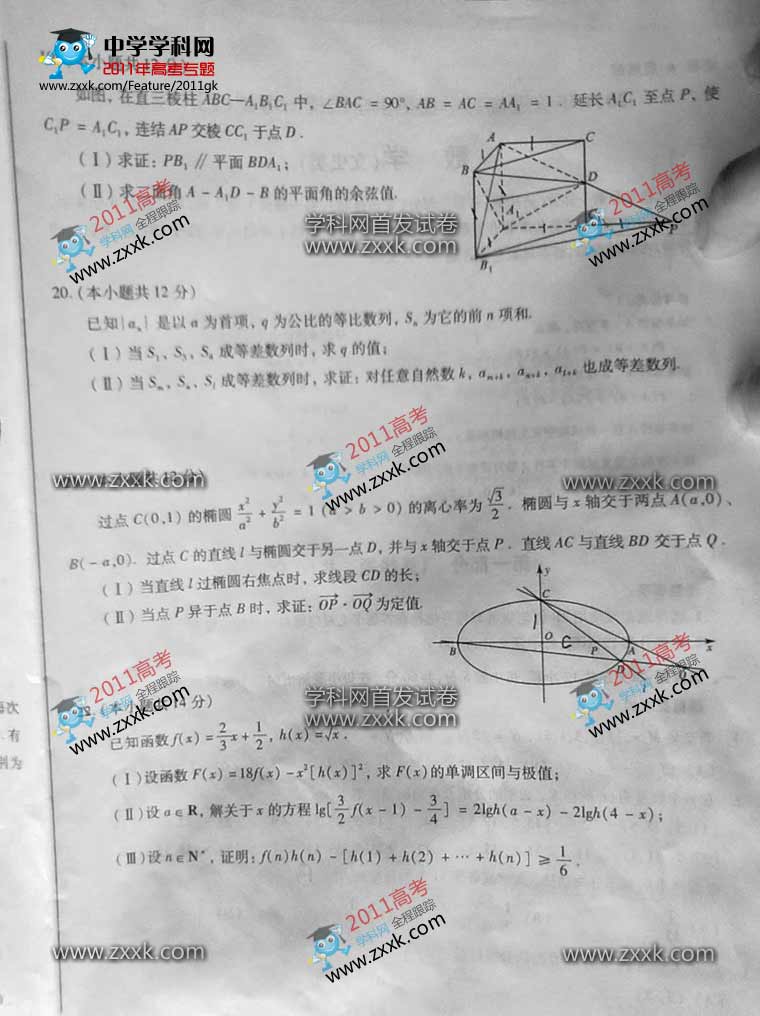 中学学科网
2011年高考专题
www.zxxk.com/Feature/2011gk
小题共12
如图, 在直三棱柱 ABC—A₁B₁C₁ 中, ∠BAC = 90°, AB = AC = AA₁ = 1. 延长 A₁C₁ 至点 P, 使
C₁P = A₁C₁, 连结 AP 交棱 CC₁ 于点 D.
(Ⅰ) 求证: PB₁ ∥ 平面 BDA₁;
(Ⅱ) 求二面角 A - A₁D - B 的平面角的余弦值.
A C B D A₁ P B₁
2011高考
学科网 全程跟踪
www.zxxk.com
学科网首发试卷
www.zxxk.com
2011高考
学科网 全程跟踪
www.zxxk.com
20. (本小题共 12 分)
已知{aₙ} 是以 a 为首项, q 为公比的等比数列, Sₙ 为它的前 n 项和.
(Ⅰ) 当 S₁、S₃、S₄ 成等差数列时, 求 q 的值;
(Ⅱ) 当 Sₘ、Sₙ、Sₗ 成等差数列时, 求证: 对任意自然数 k, aₘ₊ₖ、aₙ₊ₖ、aₗ₊ₖ 也成等差数列.
2011高考
学科网 全程跟踪
www.zxxk.com
www.zxxk.com
共 12 分)
www.zxxk.com
过点 C(0,1) 的椭圆 x²/a² + y²/b² = 1 (a > b > 0) 的离心率为 √3/2. 椭圆与 x 轴交于两点 A(a,0)、
B(-a,0). 过点 C 的直线 l 与椭圆交于另一点 D, 并与 x 轴交于点 P. 直线 AC 与直线 BD 交于点 Q.
(Ⅰ) 当直线 l 过椭圆右焦点时, 求线段 CD 的长;
(Ⅱ) 当点 P 异于点 B 时, 求证: OP⃗ · OQ⃗ 为定值.
y C 1 O c B P A x D Q
2011高考
学科网 全程跟踪
www.zxxk.com
学科网首发试卷
www.zxxk.com
2011高考
学科网 全程跟踪
www.zxxk.com
每次
有
列为
(本小题共 14 分)
已知函数 f(x) = 2/3 x + 1/2, h(x) = √x.
(Ⅰ) 设函数 F(x) = 18f(x) - x²[h(x)]², 求 F(x) 的单调区间与极值;
(Ⅱ) 设 a∈R, 解关于 x 的方程 lg[3/2 f(x - 1) - 3/4] = 2lgh(a - x) - 2lgh(4 - x);
(Ⅲ) 设 n∈N*, 证明: f(n)h(n) - [h(1) + h(2) + ⋯ + h(n)] ≥ 1/6.
2011高考
学科网 全程跟踪
www.zxxk.com
www.zxxk.com
www.zxxk.com